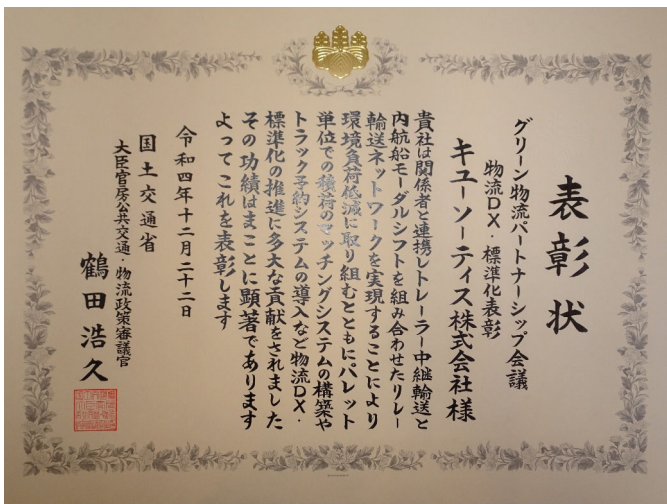 表彰状
グリーン物流パートナーシップ会議
物流DX・標準化表彰
キユーソーティス株式会社様
貴社は関係者と連携しトレーラー中継輸送と
内航船モーダルシフトを組み合わせたリレー
輸送ネットワークを実現することにより
環境負荷低減に取り組むとともにパレット
単位での積荷のマッチングシステムの構築や
トラック予約システムの導入など物流DX・
標準化の推進に多大な貢献をされました
その功績はまことに顕著であります
よってこれを表彰します
令和四年十二月二十二日
国土交通省
大臣官房公共交通・物流政策審議官
鶴田浩久